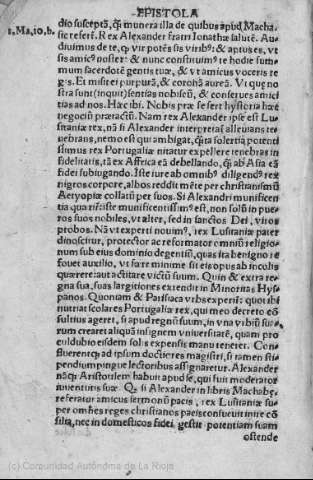 EPISTOLA
1. Ma. 10. b.
dio susceptā, q̄ munera illa de quibus apud Macha-
bæ refert. Rex Alexander fratri Ionathæ salutē. Au-
diuimus de te, ꝙ vir potēs sis viribꝰ: & aptus es, vt
sis amicꝰ noster: & nunc constituimꝰ te hodie sum-
mum sacerdotē gentis tuæ, & vt amicus voceris re
gis. Et misit ei purpurā, & coronā aureā. Vt quæ no
stra sunt (inquit) sentias nobiscū, & conserues amici
tias ad nos. Hæc ibi. Nobis præ se fert hystoria hæc
negocii præractū. Nam rex Alexander ipse est Lu-
sitaniæ rex, nā si Alexander interpretať alleuians te
nebrans, nemo est qui ambigat, quāta solertia potenti
ssimus rex Portugaliæ nitatur expellere tenebras in
fidelitatis, tā ex Affrica eā debellando, q̄ ab Asia eā
fidei subiugando. Iste iure ab omnibꝰ diligendꝰ rex
nigros corpore, albos reddit mēte per christianismū
Aetyopiæ collatū per suos. Si Alexandri munificen
tia qua rāꝰ iste munificentissimꝰ est, non solū in pue
ros suos nobiles, vt alter, sed in sanctos Dei, viros
probos. Nā vt experti nouimꝰ, rex Lusitaniæ pater
dinoscitur, protector ac reformator omniū religio-
num sub eius dominio degentiū, quas ita benigno re
fouet auxilio, vt fare minime sit eis opus ab incolis
quærere: aut actitare victū suum. Quin & extra re-
gna sua, suas largitiones extendit in Minoritas Hys
panos. Quoniam & Parisiaca vrbs experiť: quot ibi
nutriat scolares Portugaliæ rex, qui meo decreto cō
sultius ageret, si apud regnū suum, in vna vrbiū sua-
rum crearet aliquā insignem vniuersitatē, quam pro
culdubio eisdem solis expensis manu teneret. Con-
fluerentꝙ ad ipsum doctiores magistri, si tamen sti-
pendium pingue lectoribus assignaretur. Alexander
nāꝙ Aristotelem habuit apud se, qui fuit moderator
iuuentutis suæ. Qꝫ si Alexander in libris Machabę.
referatur amicus sermonū pacis, rex Lusitaniæ su-
per omnes reges christianos paci studuit inire cō
silia, nec in domesticos fidei, gestit potentiam suam
ostende
(c) Comunidad Autónoma de La Rioja